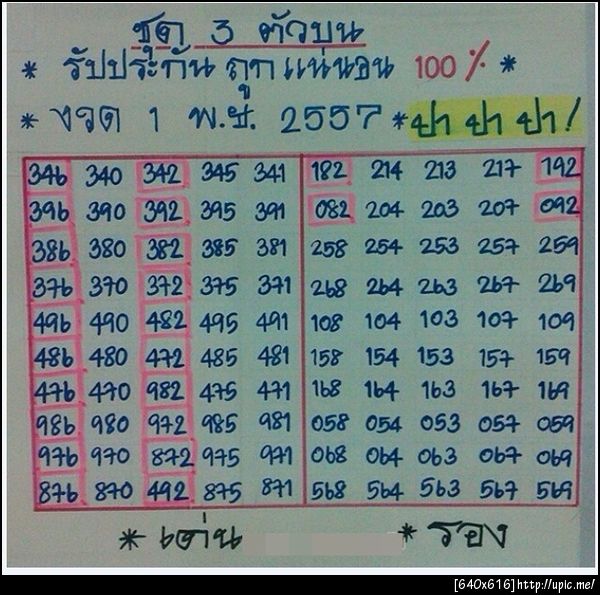 ชุด 3 ตัวบน
* รับประกัน ถูกแน่นอน 100 % *
* งวด 1 พ.ย. 2557 * ปา ปา ปา!
346 340 342 345 341 182 214 213 217 192
396 390 392 395 391 082 204 203 207 092
386 380 382 385 381 258 254 253 257 259
376 370 372 375 371 268 264 263 267 269
496 490 482 495 491 108 104 103 107 109
486 480 472 485 481 158 154 153 157 159
476 470 982 475 471 168 164 163 167 169
986 980 972 985 981 058 054 053 057 059
976 970 872 975 971 068 064 063 067 069
876 870 492 875 871 568 564 563 567 569
* เด่น * รอง
[640x616]http://upic.me/